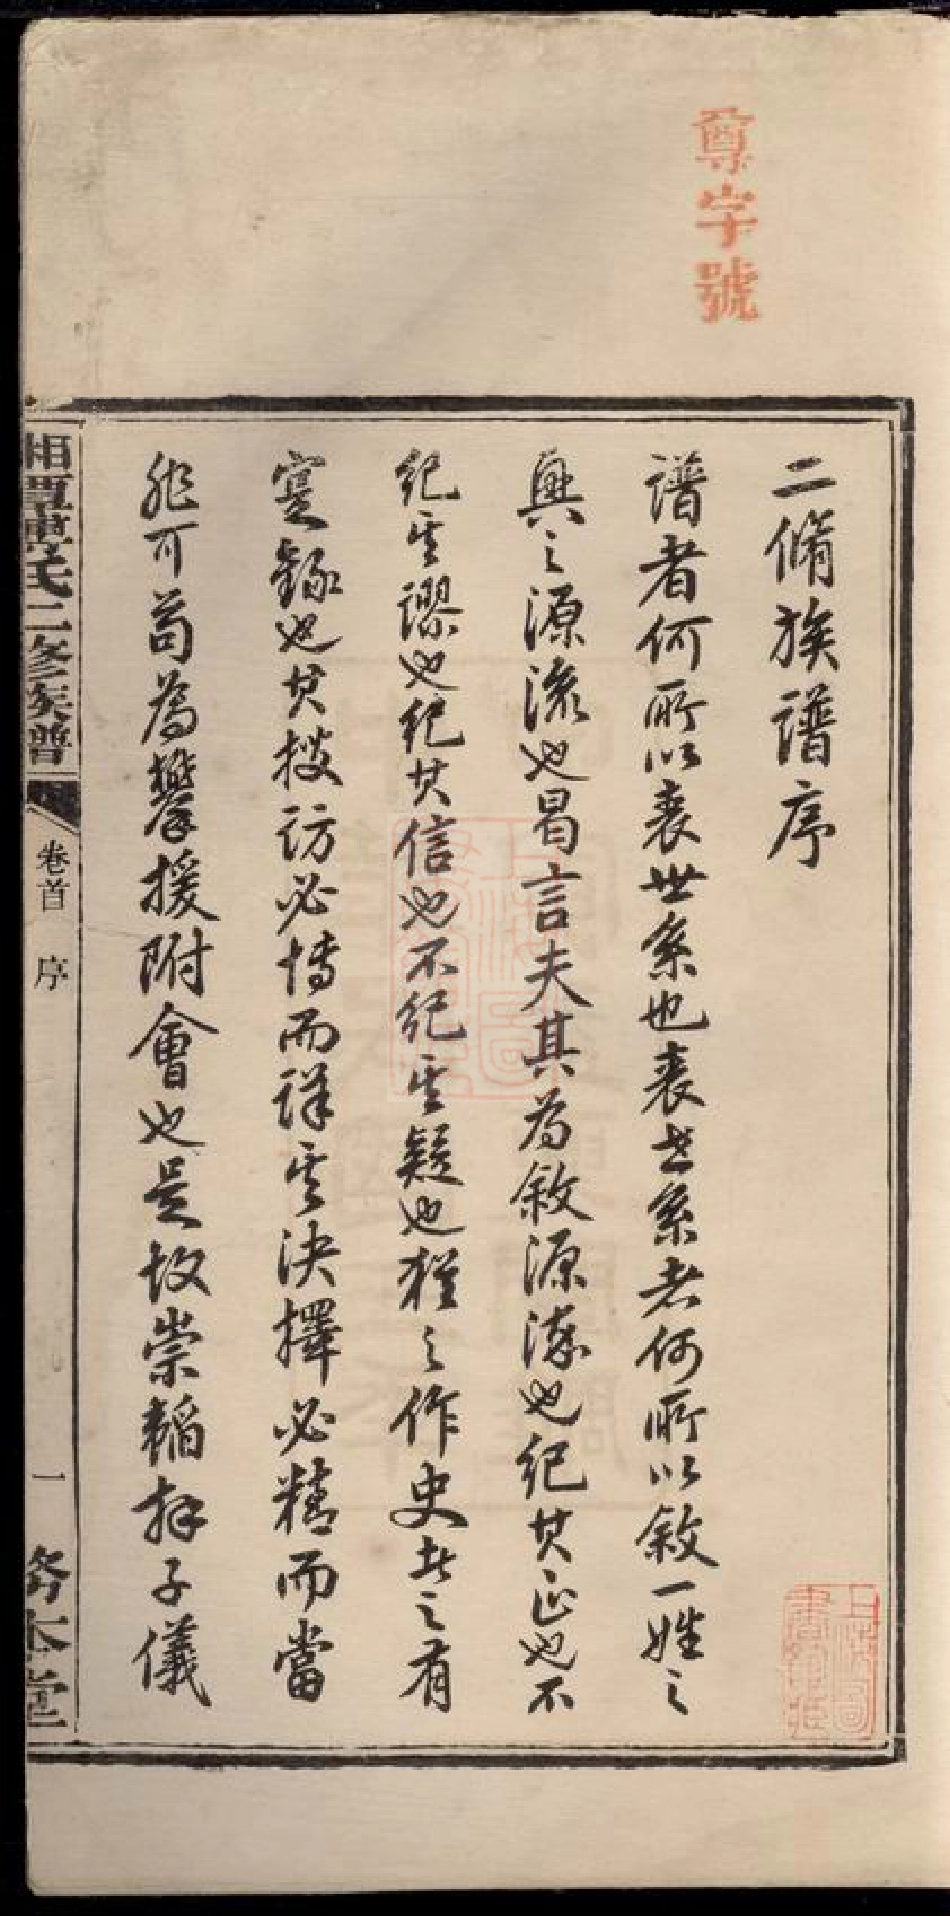 尊字號
二脩族譜序
譜者何所以表世系也表世系者何所以敘一姓之
興之源流也曷言夫其為敘源流也紀其正也不
紀其謬也紀其信也不紀其疑也猶之作史者之有
實錄也其搜訪必博而詳其決擇必精而當
非可苟為攀援附會也是故崇韜拜子儀
湘潭 氏二修族譜
卷首
序
一
務本堂
上海圖書館藏